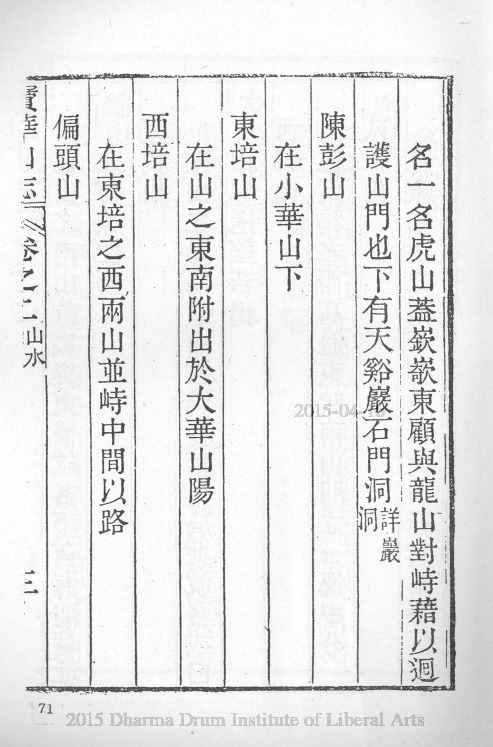 名一名虎山蓋嶔嶔東顧與龍山對峙藉以迴
護山門也下有天谿巖石門洞詳巖洞
陳彭山
在小華山下
東培山
在山之東南附出於大華山陽
西培山
在東培之西兩山並峙中間以路
偏頭山
寶華山志 卷之二 山水 三
71
2015-04
2015 Dharma Drum Institute of Liberal Arts